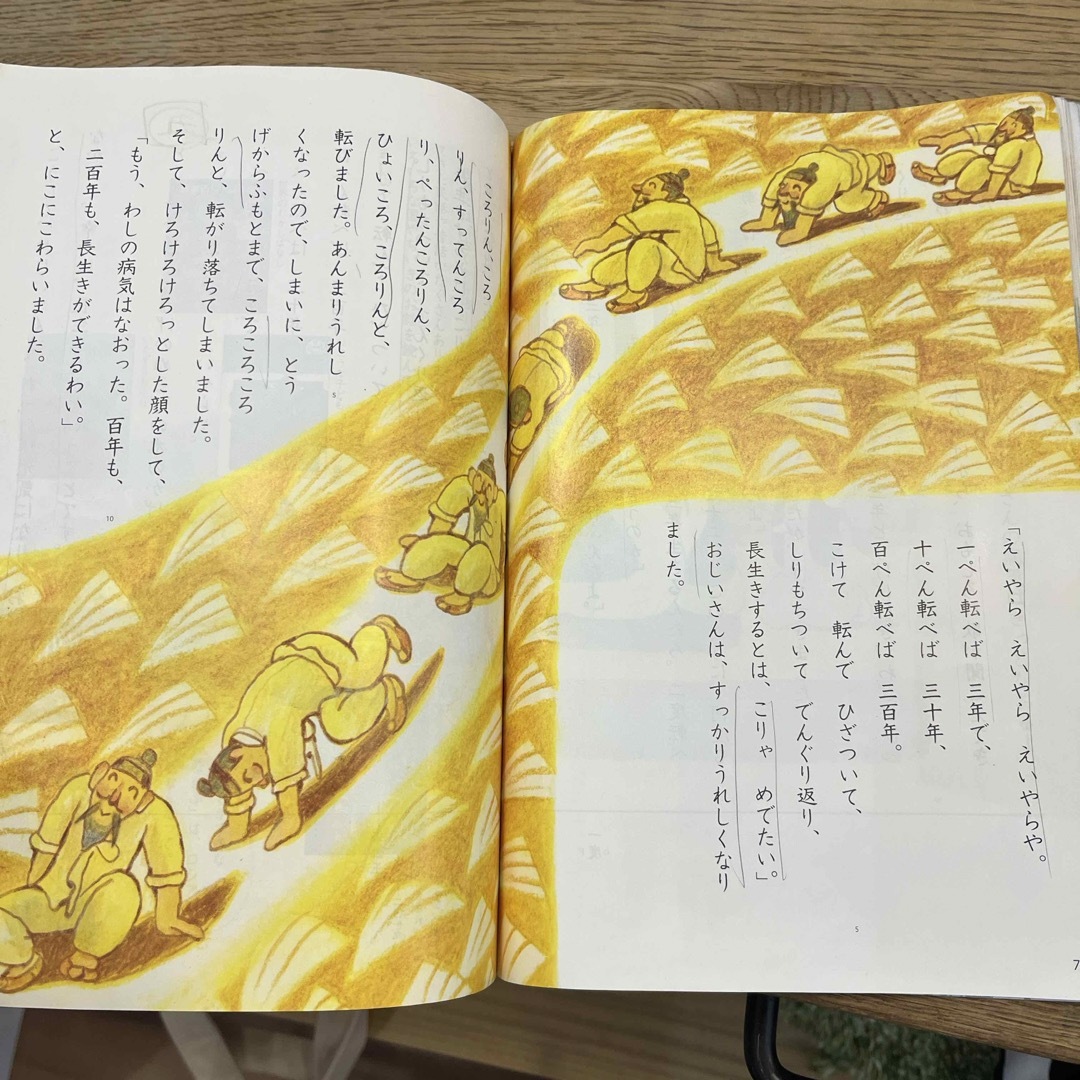 「えいやら　えいやら　えいやらや。
一ぺん転べば　三年で、
十ぺん転べば　三十年、
百ぺん転べば　三百年。
こけて　転んで　ひざついて、
しりもちついて　でんぐり返り、
長生きするとは、こりゃ　めでたい」。
おじいさんは、すっかりうれしくなり
ました。
5
7
ころりん、ころ
りん、すってんころ
り、ぺったんころりん、
ひょいころ、ころりんと、
転びました。あんまりうれし
くなったので、しまいに、とう
げからふもとまで、ころころころ
りんと、転がり落ちてしまいました。
そして、けろけろっとした顔をして、
「もう、わしの病気はなおった。百年も、
二百年も、長生きができるわい。」
と、にこにこわらいました。
5
10